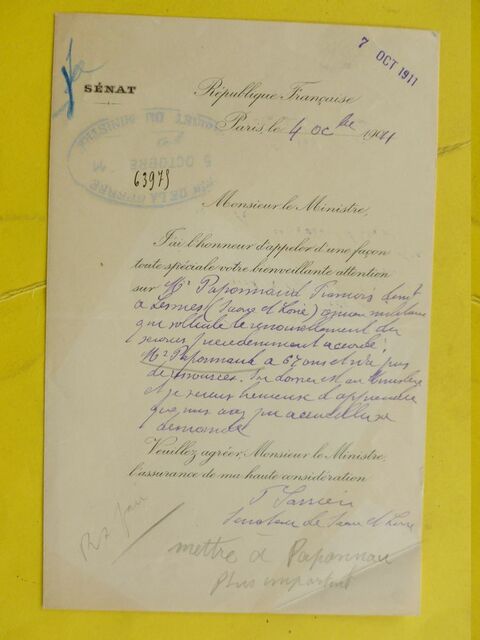 7 OCT 1911
SÉNAT
République Française
Paris, le 4 8bre 1911
CABINET DU MINISTRE
5 OCTOBRE 11
DE LA GUERRE
63975
Monsieur le Ministre,
J'ai l'honneur d'appeler d'une façon
toute spéciale votre bienveillante attention
sur Mr Paponnaud François demt
à (Saône et Loire) ancien militaire
qui sollicite le renouvellement du
secours précédemment accordé.
Mr Paponnaud a 67 ans et n'a pas
de ressources. Son dossier est au ministère
et je serais heureux d'apprendre
que vous avez pu accueillir sa
demande
Veuillez agréer, Monsieur le Ministre,
l'assurance de ma haute considération
Sénateur de Saône et Loire
mettre à Paponnau
Plus important